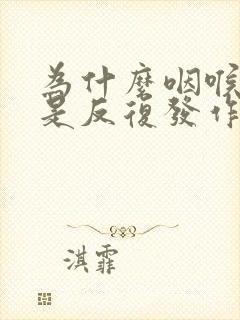 為什麼咽喉
是反復發作
淇霏